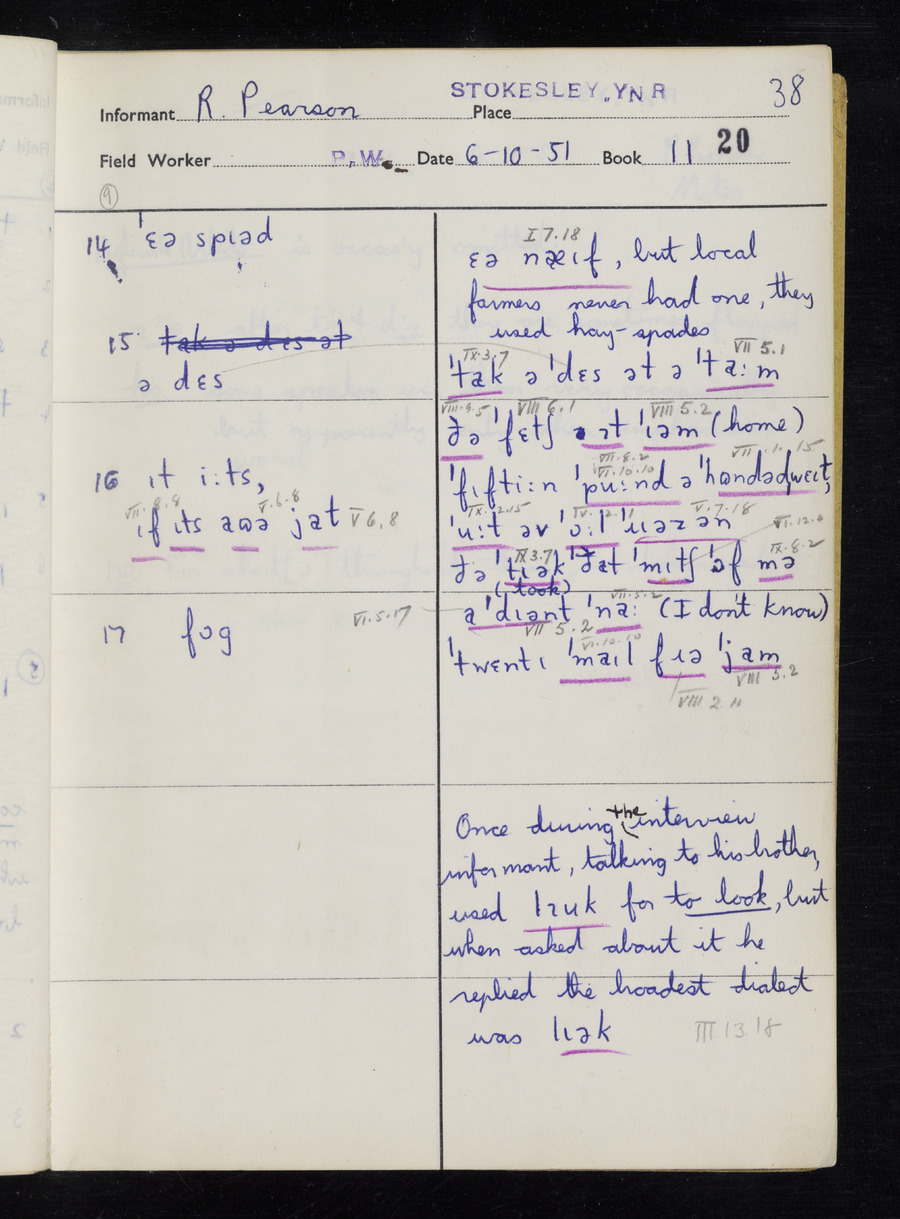 STOKESLEY, YNR 38
Informant R. Pearson Place
Field Worker P.W. Date 6-10-51 Book 11 20
9
14 ˈɛə spɪəd
15 tak ə dɛs ət
ə dɛs
16 ɪt iːts,
VII.8.8 V.6.8
ɪf ɪts aʊə jat V 6,8
17 fɒg
I 7.18
ɛə næɪf, but local
farmers never had one, they
used hay-spades
IX.3.7 VII 5.1
ˈtak ə ˈdɛs ət ə ˈtaːm
VIII.9.5 VIII 6.1 VIII 5.2
ðə ˈfɛtʃ ɪt ˈɪəm (home)
VII.8.2 VII.1.15
VI.10.10
ˈfɪftiːn ˈpuːnd ə ˈhʊndədweɪt,
V.7.18
IX.3.7 VI.12.
IX.8.2
ðə ˈtɪək ðat ˈmɪtʃ əf mə
(took)
VI.5.17 VII.5.2
a ˈdɪənt ˈnaː (I don't know)
VII 5.2 VI.10.10
ˈtwɛntɪ ˈmaɪl fɪə ˈjam
VIII 5.2
VIII 2.11
Once during the interview
informant, talking to his brother,
used lɪuk for to look, but
when asked about it he
replied the broadest dialect
was lɪək III.13.18